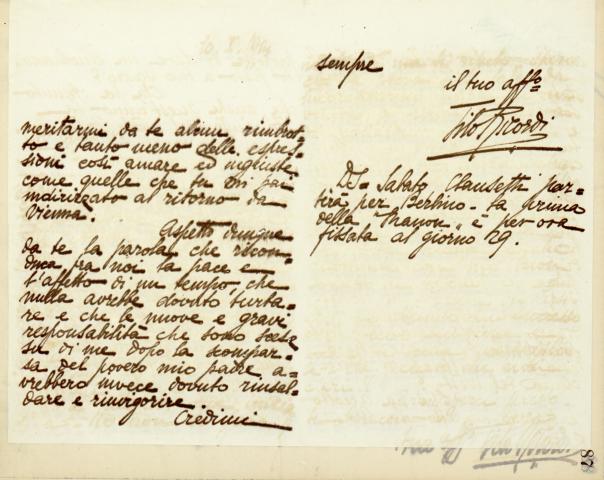 meritarmi da te alcun rimbrot=
to e tanto meno delle espres=
sioni così amare ed ingiuste
come quelle che tu mi hai
indirizzato al ritorno da
Vienna.
Aspetto dunque
da te la parola che ricon=
duca fra noi la pace e
l'affetto di un tempo, che
nulla avrebbe dovuto turba=
re e che le nuove e gravi
responsabilità che sono scese
su di me dopo la scompar=
sa del povero mio padre a=
vrebbero invece dovuto rinsal=
dare e rinvigorire.
Credimi
sempre
il tuo affo
Tito Ricordi
PS= Sabato Clausetti par=
tirà per Berlino - la prima
della "Manon" è per ora
fissata al giorno 29.
87